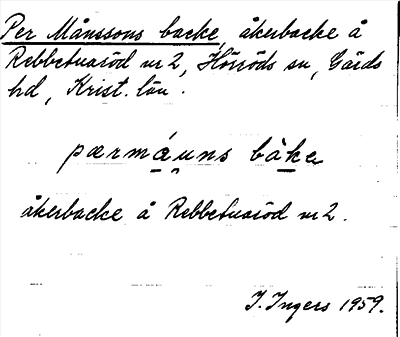 Per Månssons backe, åkerbacke å
Rebbetuaröd nr 2, Hörröds sn, Gärds
hrd, Krist. län.
pærmáuns bàkə
åkerbacke å Rebbetuaröd nr 2.
I. Ingers 1959.